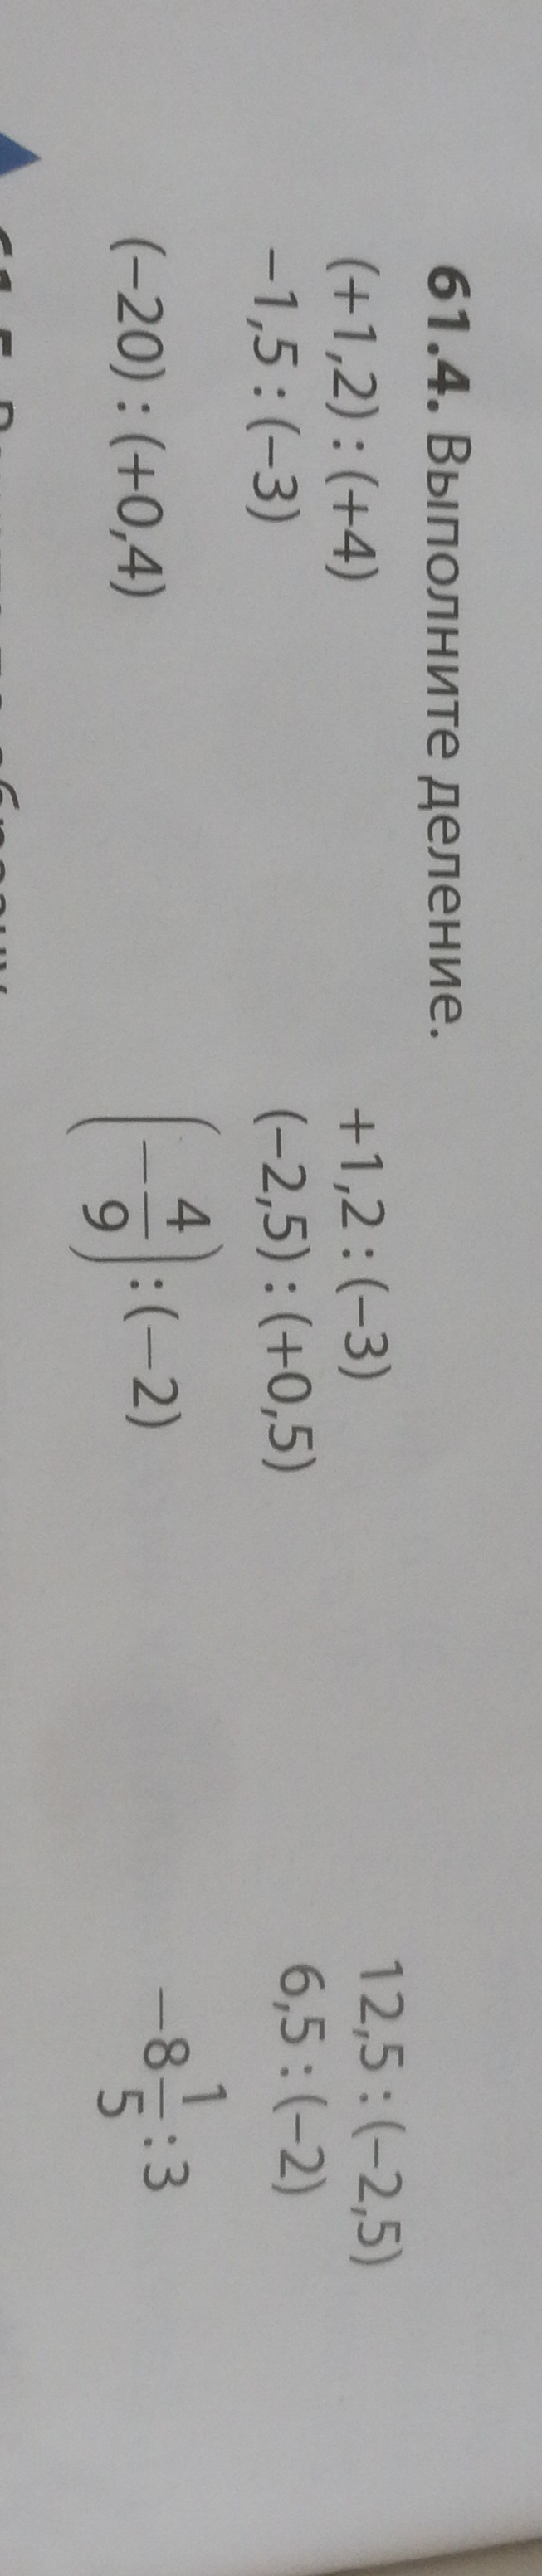 61.4. Выполните деление.
(+1,2) : (+4) +1,2 : (−3) 12,5 : (−2,5)
−1,5 : (−3) (−2,5) : (+0,5) 6,5 : (−2)
(−20) : (+0,4) (−4/9) : (−2) −8 1/5 : 3